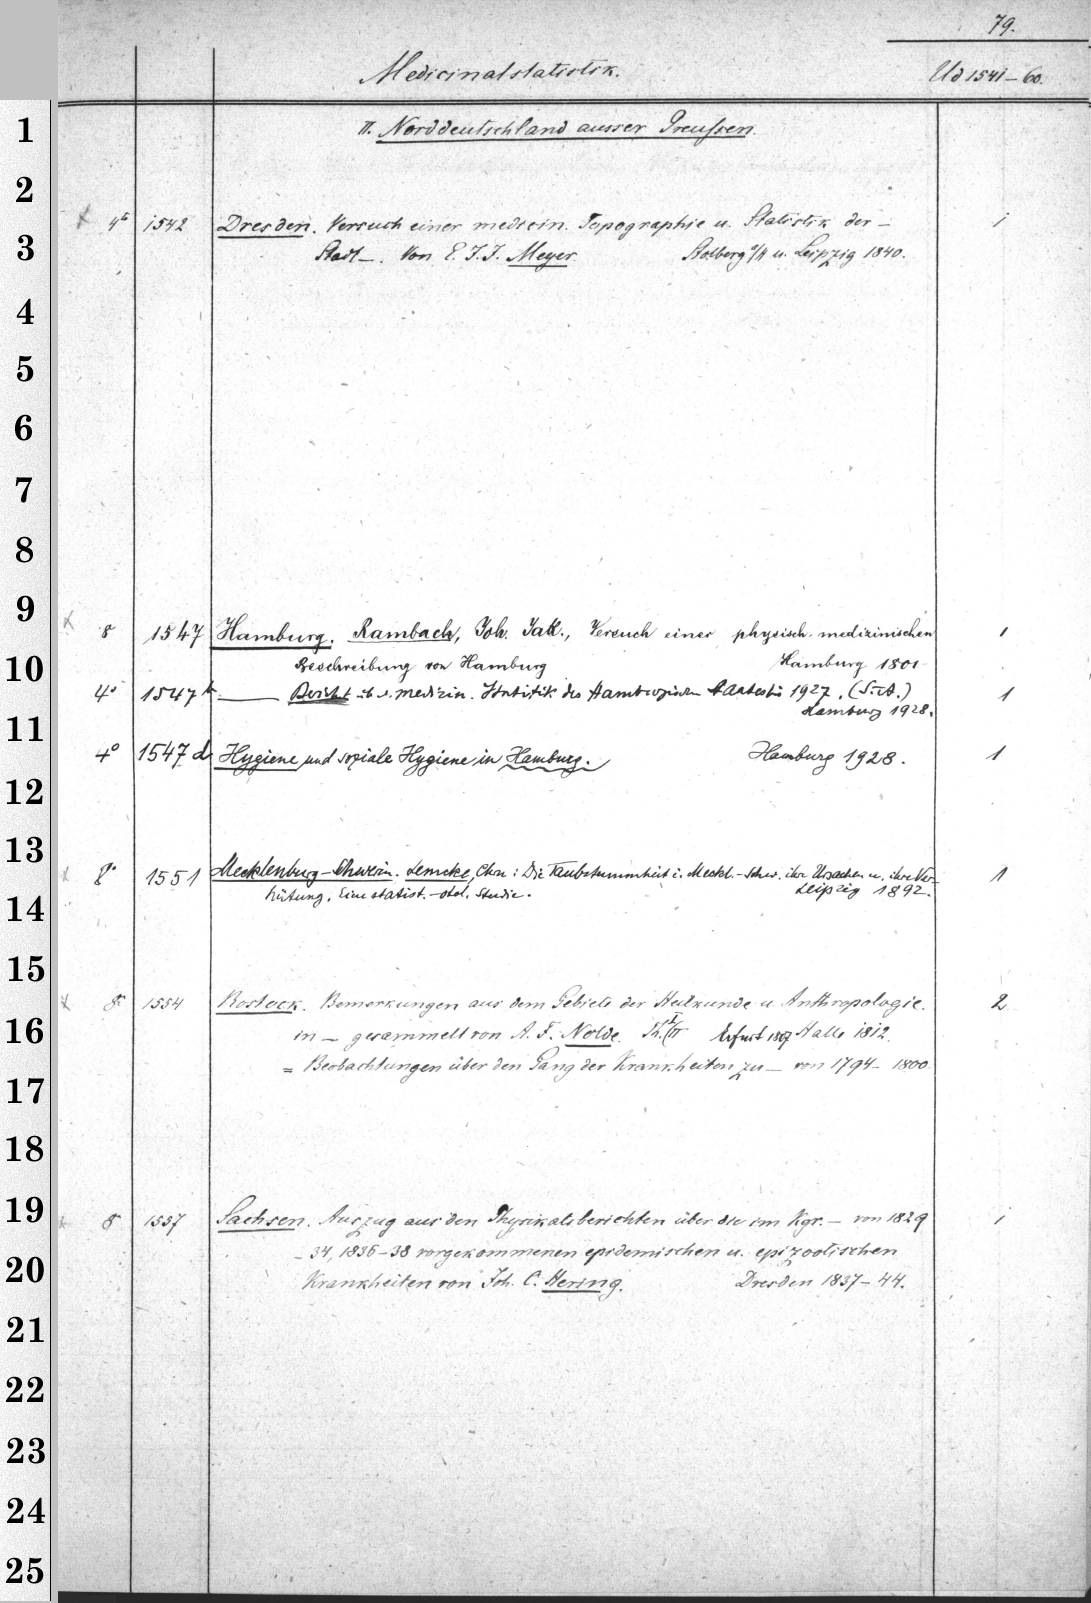 79.
Medicinalstatistik. Ud 1541-60.
II. Norddeutschland ausser Preussen.
4º 1542 Dresden. Versuch einer medicin. Topographie u. Statistik der - 1
Stadt -. Von E. J. J. Meyer. Stolberg a/H u. Leipzig 1840.
8 1547 Hamburg. Rambach, Joh. Jak., Versuch einer physisch. medizinischen 1
Beschreibung von Hamburg Hamburg 1801
4º 1547 k —— Bericht üb. d. medizin. Statistik des Hamburgischen Staates für 1927. (S.A.) 1
Hamburg 1928.
4º 1547 d Hygiene und soziale Hygiene in Hamburg. Hamburg 1928. 1
8º 1551 Mecklenburg-Schwerin. Lemcke, Chr.: Die Taubstummheit i. Meckl.-Schw. ihre Ursachen u. ihre Ver- 1
hütung. Eine statist.-otol. Studie. Leipzig 1892.
8º 1554 Rostock. Bemerkungen aus dem Gebiete der Heilkunde u. Anthropologie. 2
in - gesammelt von A. F. Nolde. Th. I/II Erfurt 1807 Halle 1812.
= Beobachtungen über den Gang der Krankheiten zu - von 1794-1800.
8 1557 Sachsen. Auszug aus den Physikatsberichten über die im Kgr. - von 1829 1
- 34, 1836-38 vorgekommenen epidemischen u. epizootischen
Krankheiten von Joh. C. Hering. Dresden 1837-44.
1
2
3
4
5
6
7
8
9
10
11
12
13
14
15
16
17
18
19
20
21
22
23
24
25